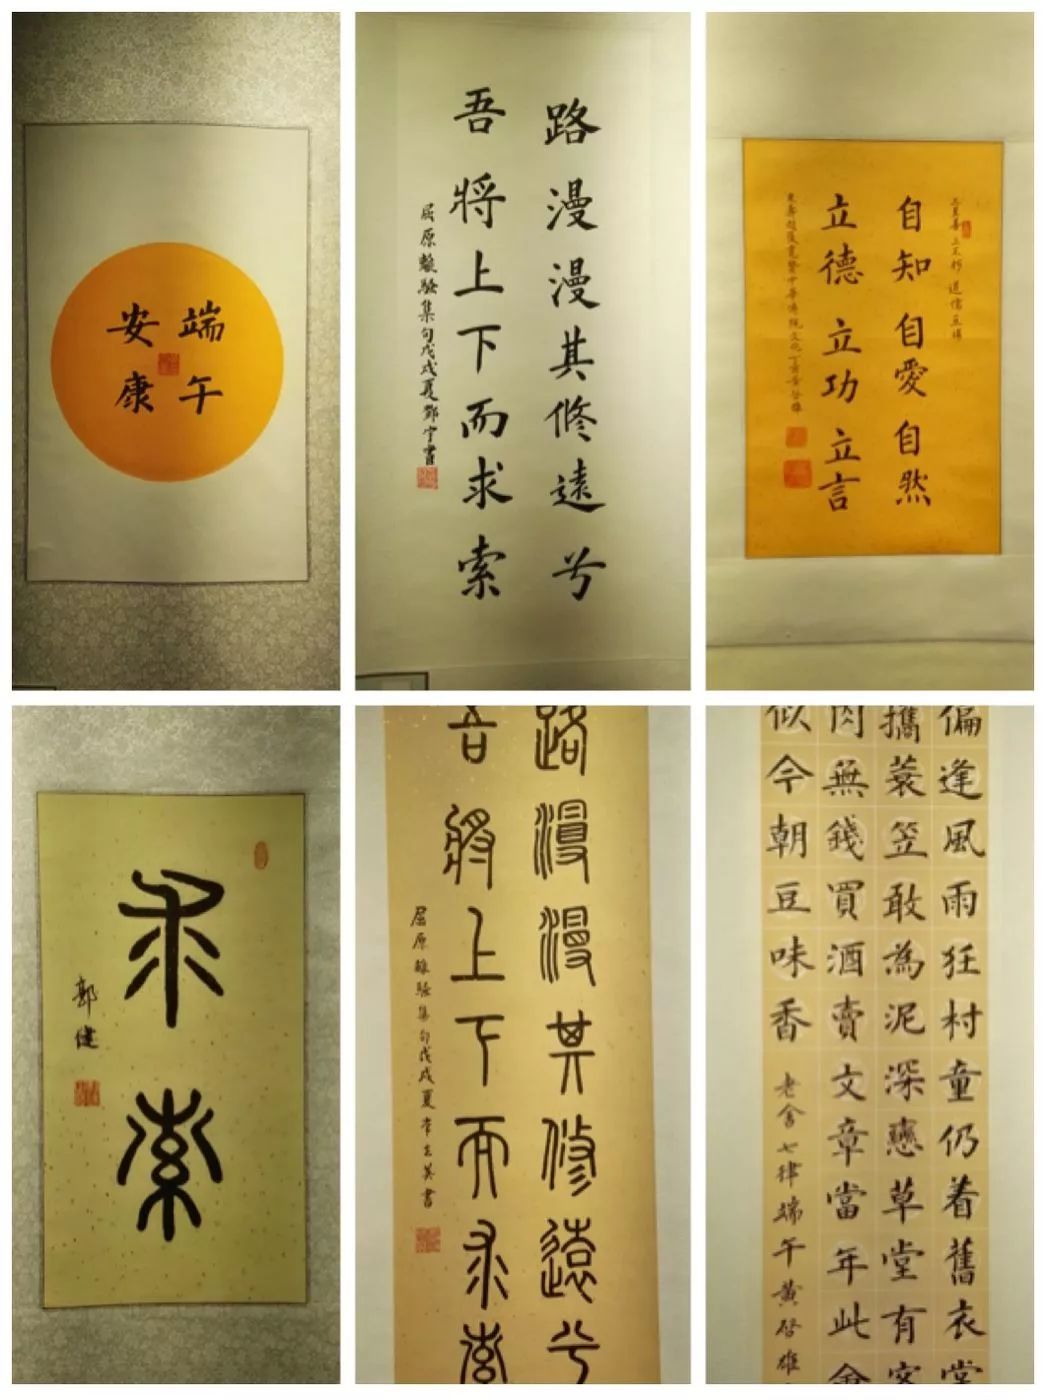 端午
安康
路漫漫其修遠兮
吾將上下而求索
屈原離騷集句戊戌夏鄧宇書
自知自愛自然
立德立功立言
求索
郭健
路漫漫其修遠兮
吾將上下而求索
屈原離騷集句戊戌夏李玉英書
偏逢風雨狂村童仍着舊衣
攜蓑笠敢為泥深戀草堂有客
肉無錢買酒賣文章當年此會
似今朝豆味香
老舍七律端午黃啓雄